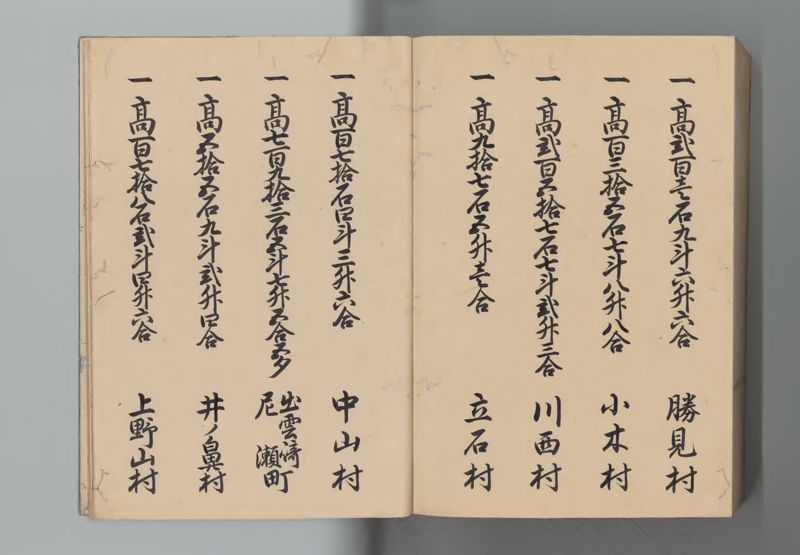 一 高弐百壱石九斗六升六合 勝見村
一 高百三拾五石七斗八升八合 小木村
一 高弐百五拾七石七斗弐升三合 川西村
一 高九拾七石五升壱合 立石村
一 高百七拾石四斗三升六合 中山村
一 高七百九拾三石五斗七升五合五夕 出雲崎 尼瀬町
一 高五拾五石九斗弐升四合 井ノ鼻村
一 高百七拾八石弐斗四升六合 上野山村